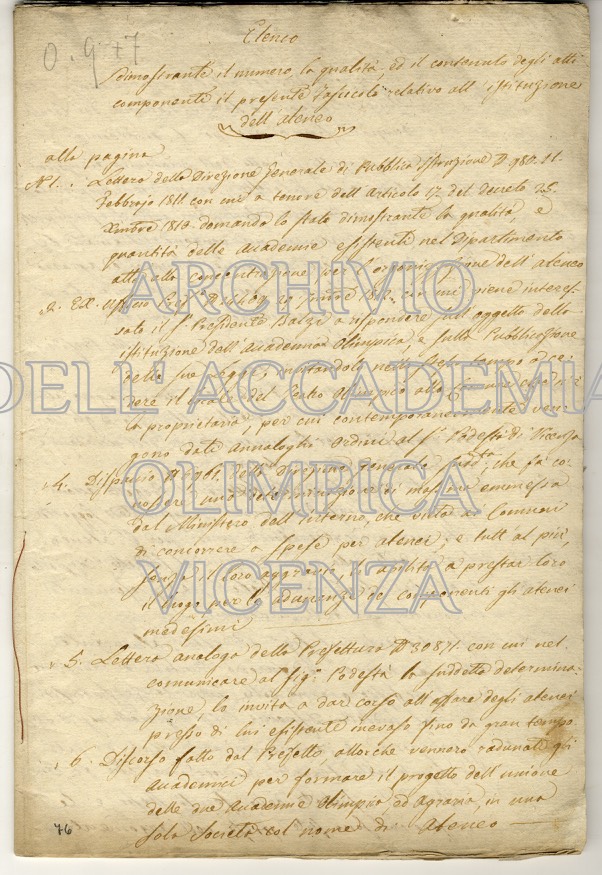 0.977
Elenco
dimostrante il numero, la qualità, ed il contenuto degli atti
componenti il presente Fascicolo relativo all'istituzione
dell'ateneo
alla pagina
N.° 1. Lettera della Direzione Generale di Pubblica Istruzione N 980. 11.
Febbrajo 1811 con cui a tenore dell'Articolo 17. del decreto 25.
Xmbre 1810 domanda lo stato dimostrante la qualità, e
quantità delle Academie esistenti nel Dipartimento
atte alla concentrazione per l'organizzazione dell'ateneo
2. Ex. Ufficio 1812 con cui viene interes-
sato il Sr. Presidente Balzi a rispondere sull'oggetto della
istituzione dell'Accademia Olimpica, e sulla Pubblicazione
delle sue Leggi, invitandolo nello stesso tempo a ce-
dere il locale del Teatro Olimpico alla Comune che n'è
la proprietaria, per cui contemporaneamente ven-
gono date annaloghi ordini al Sr. Podestà di Vicenza
4. Dispaccio della Direzione generale che fa co-
noscere una determinazione di massima emmessa
dal Ministero dell'Interno, che vieta ai Comuni
di concorrere a spese per atenei, e tutt'al più,
senza il loro aggravio, li abilita a prestar loro
il luogo per le adunanze dei componenti gli atenei
medesimi
5. Lettera analoga della Prefettura N 30871. con cui nel
comunicare al Sigr. Podestà la suddetta determina-
zione, lo invita a dar corso all'affare degli atenei
presso di lui esistente inevaso fino da gran tempo
6. Discorso fatto dal Prefetto, allorchè vennero radunati gli
Academici per formare il progetto dell'unione
delle due Academie Olimpica ed Agraria in una
sola Società col nome di Ateneo
76
ARCHIVIO
DELL'ACCADEMIA
OLIMPICA
VICENZA